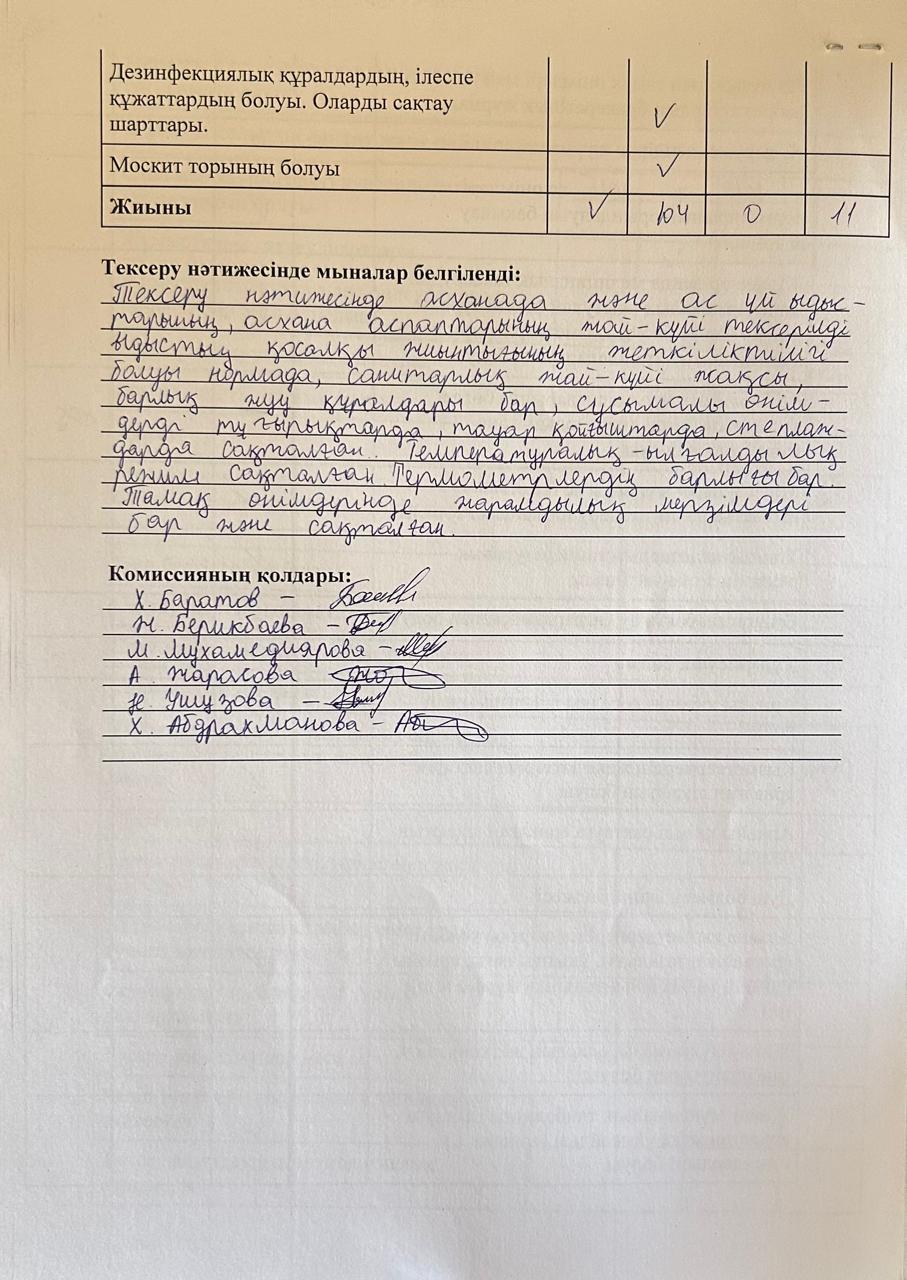 Дезинфекциялық құралдардың, ілеспе
құжаттардың болуы. Оларды сақтау
шарттары. √
Москит торының болуы √
Жиыны √ 104 0 11
Тексеру нәтижесінде мыналар белгіленді:
Тексеру нәтижесінде асханада және ас үй ыдыс-
тарының, асхана аспаптарының жай-күйі тексерілді
ыдыстың қосалқы жиынтығының жеткіліктілігі
болуы нормада, санитарлық жай-күйі жақсы,
барлық жуу құралдары бар, сусымалы өнім-
дерді тұғырықтарда, тауар қойғыштарда, стеллаж-
дарда сақталған. Температуралық-ылғалдылық
режим сақталған Термометрлердің барлығы бар.
Тамақ өнімдерінде жарамдылық мерзімдері
бар және сақталған.
Комиссияның қолдары:
Х. Баратов –
Н. Берикбаева –
М. Мухамедиярова –
А. Жарасова
Н. Ушузова –
Х. Абдрахманова –